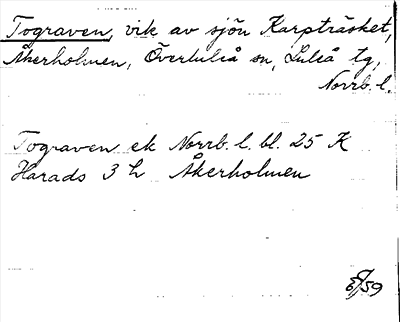 Tograven, vik av sjön Karpträsket,
Åkerholmen, Överluleå sn, Luleå tg,
Norrb. l.
Tograven ek Norrb. l. bl. 25 K
Harads 3 h Åkerholmen
/59